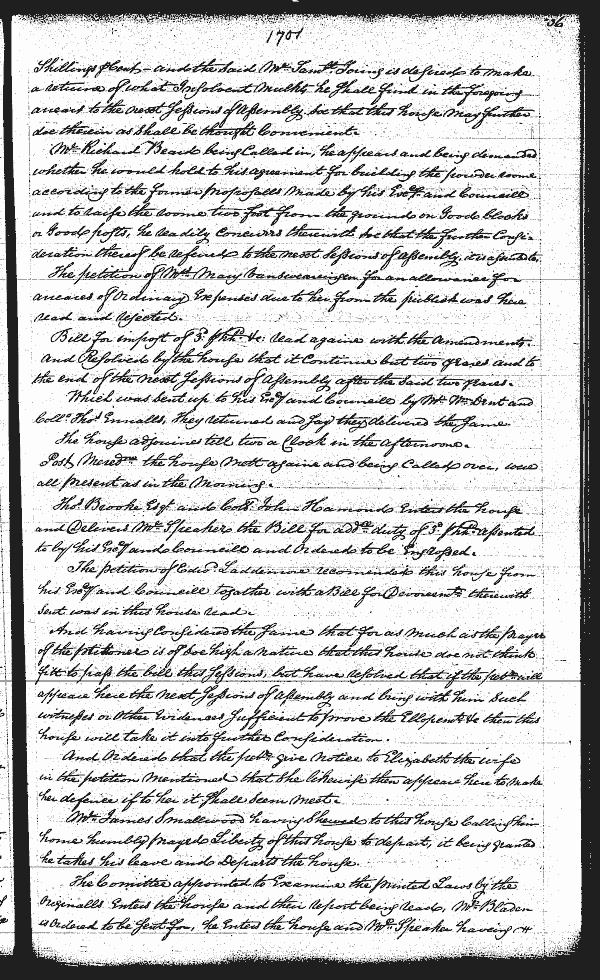 56
1701
Shillings p Cent - and the Said Mr. Saml. Young is desired to make
a returne of what Insolvent Mulkts he shall find in the foregoing
arrears to the next Sessions of Assembly. Soe that this house May further
doe therein as shall be thought Convenient.
Mr. Richard Beard being Called in, he appears and being demanded
whether he would hold to his agreement for building the powder roome
according to the former proposalls Made by his Excy. and Councill
and to raise the roome two foot from the ground on Good blocks
or Good posts, he readily Concurrs therewith. Soe that the further Consi-
deration thereof be referred to the next Sessions of Assembly, it is assented to.
The petition of Mrs. Mary Vansweareingen for an allowance for
arreares of Ordinary Expenses due to her from the publick was here
read and rejected.
Bill for impost of 3d. p hhd. &c: read againe with the Amendments.
And Resolved by the house that it Continue but two yeares and to
the end of the next Sessions of Assembly after the said two yeares.
Which was sent up to his Excy and Councill by Mr. Wm. Dent and
Coll. Thos. Ennalls, They returned and say they delivered the Same
The house adjournes till two a Clock in the afternoone.
Post Meredm. the house Mett againe and being Called over, were
all present as in the Morning.
Thos. Brooke Esqr. and Coll. John Hamond Enters the house
and Delivers Mr. Speaker the Bill for addll. duty of 3d. p hhd. assented
to by his Excy and Councill and Ordered to be Engrossed.
The petition of Edwd. Laddemore recomended this house from
his Excy and Councill together with a Bill for Devorcemt. therewith
sent was in this house read.
And having Considered the Same that for as much as the prayer
of the petitioner is of soe high a Nature that this house doe not think
fitt to pass the bill this Sessions, but have resolved that if the petr. will
appeare here the next Sessions of Assembly and bring with him Such
witnesses or Other Evidences Sufficient to prove the Ellopemt. &c then this
house will take it into further Consideration.
And Ordered that the petr. give Notice to Elizabeth the wife
in the petition Mentioned that She likewise then appeare here to make
her defence if to her it shall Seem Meet.
Mr. James Smallwood having Shewed to this house Calling him
home humbly prayes Liberty of this house to depart, it being granted
he takes his leave and Departs the house
The Comittee appointed to Examine the printed Laws by the
Originalls Enters the house and their report being read, Mr. Bladen
is ordered to be sent for, he Enters the house and Mr. Speaker haveing